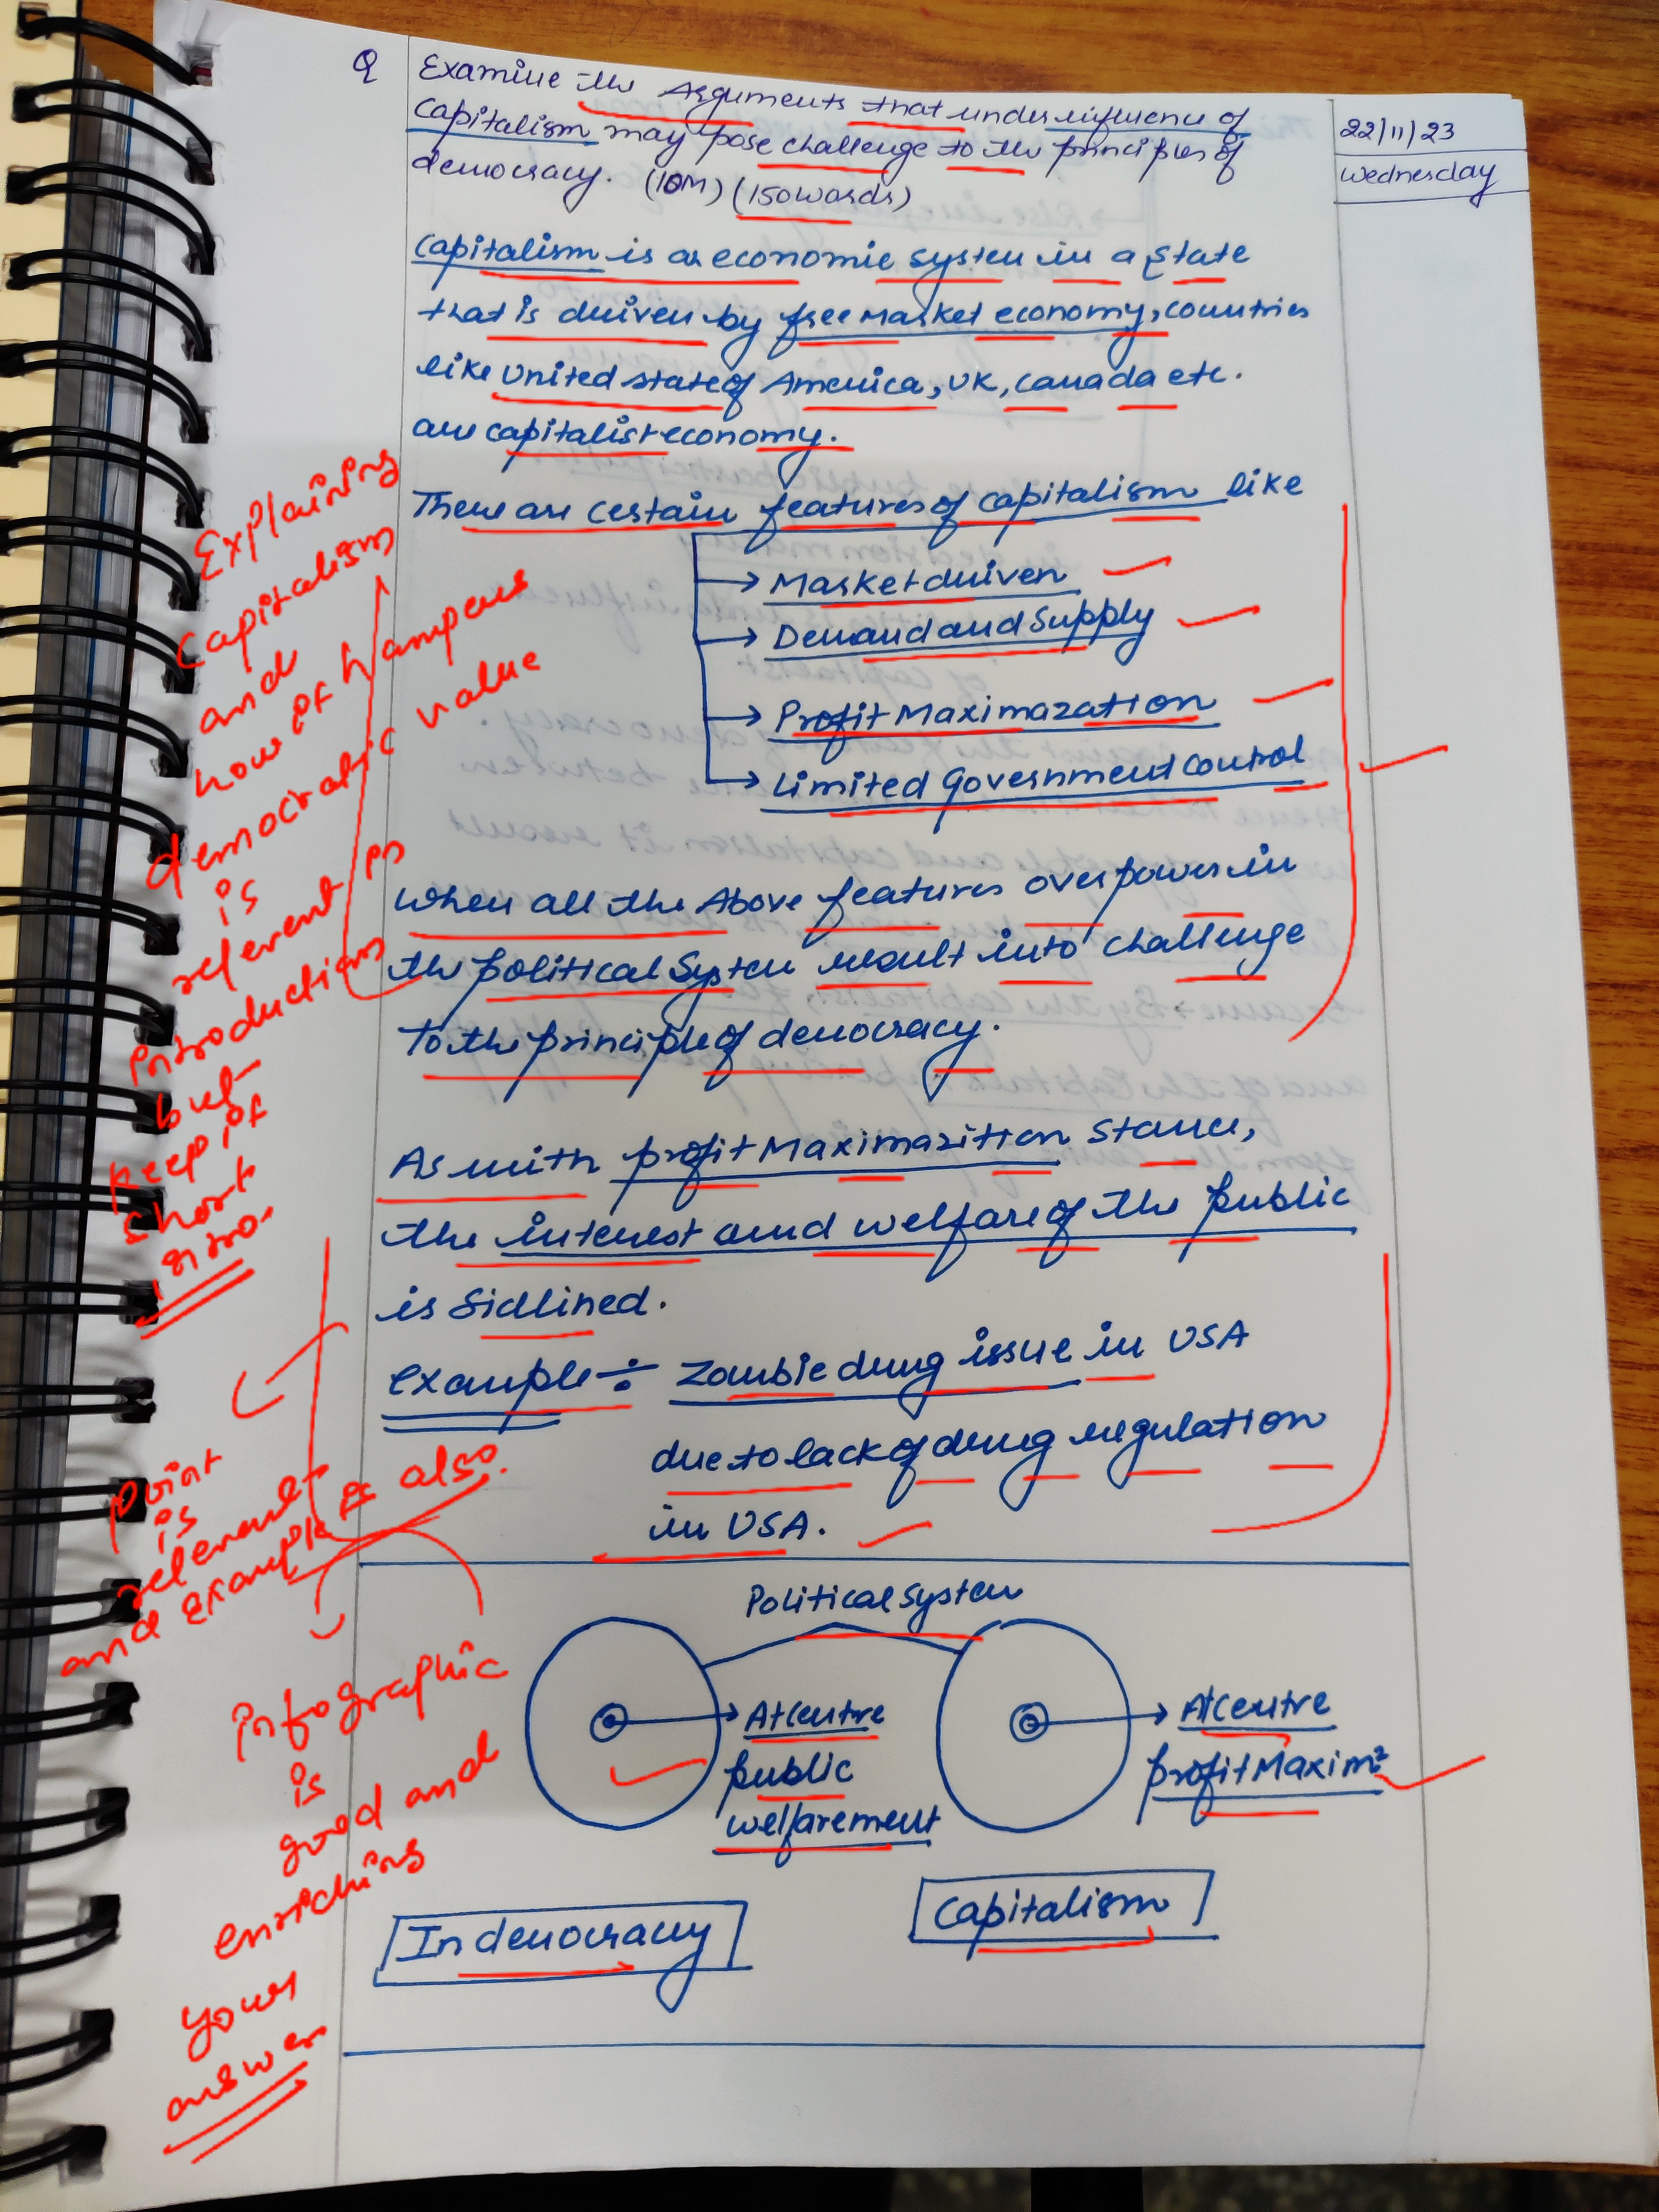 Q Examine the Arguments that under influence of
capitalism may pose challenge to the principles of
democracy. (10M) (150words)
22/11/23
Wednesday
Capitalism is an economic system in a state
that is driven by free market economy, countries
like United state of America, UK, Canada etc.
are capitalist economy.
There are certain features of capitalism like
→ Market driven
→ Demand and Supply
→ Profit Maximazation
→ Limited Government control
When all the Above features overpower in
the political System result into challenge
to the principle of democracy.
As with profit Maximazition stance,
the interest and welfare of the public
is Sidlined.
Example÷ Zombie drug issue in USA
due to lack of drug regulation
in USA.
Political System
At centre
public
welfarement
At centre
profit Maximz
In democracy
Capitalism
Explaining
capitalism
and
how it hampers
democratic value
is
relevent in
introduction
but
keep it
short
intro.
point
is
relevant
and example is also.
infographic
is
good and
enriching
your
answer